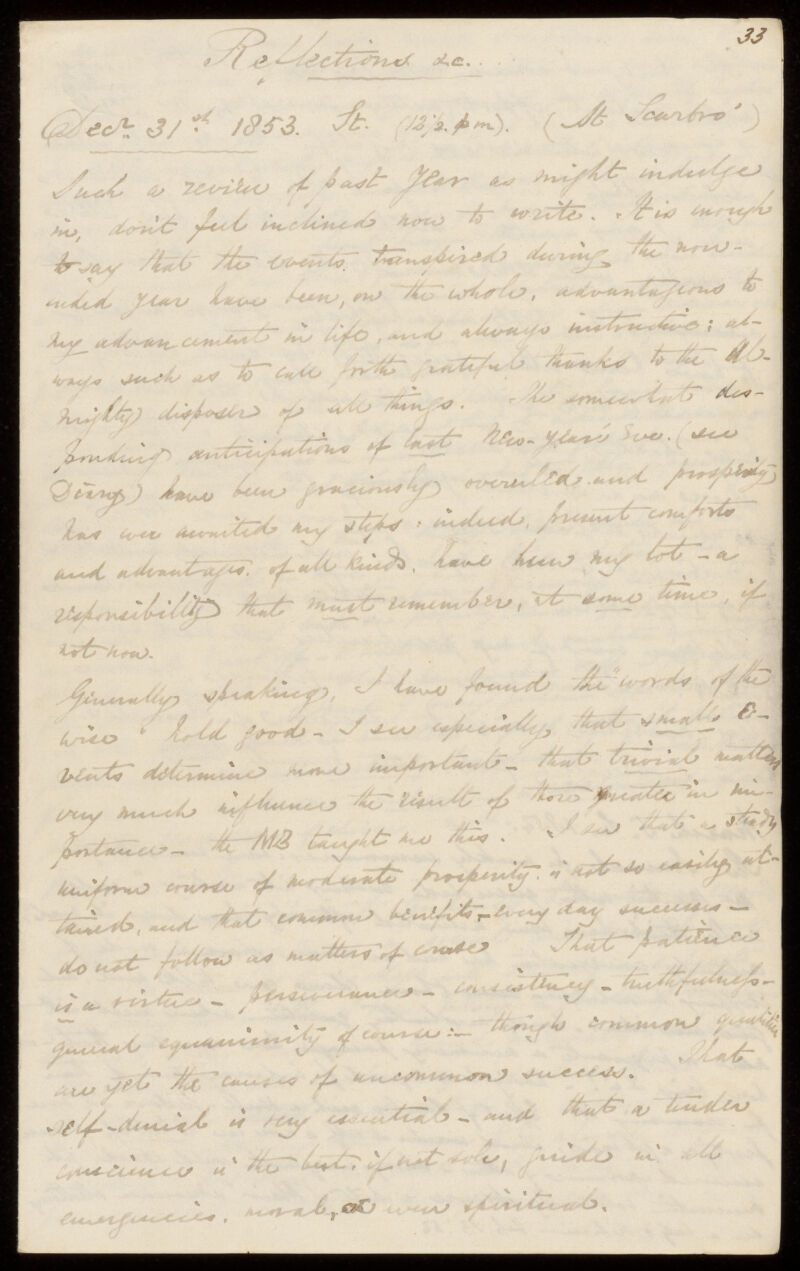 33
Reflections &c.
Decr. 31st. 1853. St. (12½ p m). (At Scarbro')
Such a review of past year as might indulge
in, don't feel inclined now to write. It is enough
to say that the events transpired during the now-
ended year have been, on the whole, advantageous to
my advancement in life, and always instructive; al-
ways such as to call forth grateful thanks to the Al-
mighty disposer of all things. The somewhat des-
ponding anticipations of last New-year's Eve. (see
Diary) have been graciously overruled and prosperity
has ever awaited my steps: indeed, present comforts
and advantages of all kinds, have been my lot - a
responsibility that must remember, at some time, if
not now.
Generally speaking, I have found the "words of the
wise" hold good - I see especially that small e-
vents determine more important - that trivial matters
very much influence the result of those greater in im-
portance - the MB taught me this. I see that a steady
uniform course of moderate prosperity is not so easily at-
tained, and that common benefits - every day successes -
do not follow as matters of course That patience
is a virtue - perseverance - consistency - truthfulness -
general equanimity of course :- though common qualities
are yet the causes of uncommon success. That
self-denial is very essential - and that a tender
conscience is the best, if not sole, guide in all
emergencies, moral, or even spiritual.